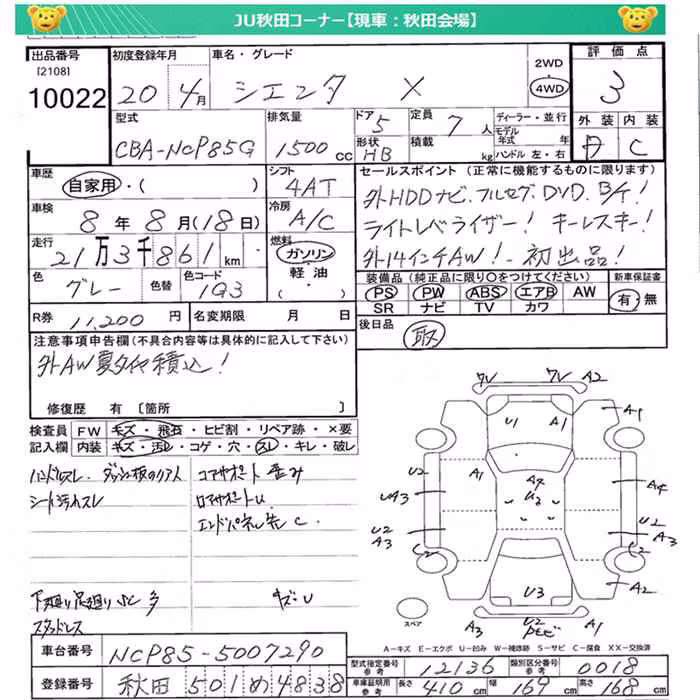 JU秋田コーナー【現車：秋田会場】
出品番号
[2108]
10022
初度登録年月
20 4月
車名・グレード
シエンタ X
2WD
4WD
評価点
3
型式
CBA-NCP85G
排気量
1500cc
ドア 5
形状 HB
定員 7人
積載 kg
ディーラー・並行
モデル年式 年
ハンドル 左・右
外装 内装
D C
車歴
自家用・( )
シフト
4AT
車検
8年8月(18日)
冷房
A/C
走行
21万3千861km
燃料
ガソリン・
軽油・
( )
色
グレー
色替
色コード
1G3
セールスポイント (正常に機能するものに限ります)
外HDDナビ.フルセグ.DVD.B/T!
ライトレベライザー! キーレスキー!
外14インチAW!-初出品!
装備品 (純正品に限り〇をつけてください)
PS PW ABS エアB AW
SR ナビ TV カワ
新車保証書
有・無
R券 11,200円
名変期限 月 日
後日品
取
注意事項申告欄(不具合内容等は具体的に記入して下さい)
外AW夏タイヤ積込!
修復歴 有 [箇所 ]
検査員記入欄
FW キズ・飛石・ヒビ割・リペア跡・×要
内装 キズ・汚レ・コゲ・穴・スレ・キレ・破レ
ハンドルスレ.
シート汚れスレ
コアサポート 歪み
ロアサポートU
エンドパネル先 C
下廻り足廻りSC 多
キズ・U
スタッドレス
ワレ ワレ A2
U1 A1
A1
U2
UA3
A1
A4
U2
A4
U2
A3
U2
A3
C2 C2
A2
U3
A3 U2 A1
スペア
A=キズ E=エクボ U=凹み W=補修跡 S=サビ C=腐食 XX=交換済
車台番号 NCP85-5007290
登録番号 秋田501め4838
型式指定番号 参考 12136
類別区分番号 参考 0018
車庫証明用 参考 長さ 410cm 幅 169cm 高さ 168cm